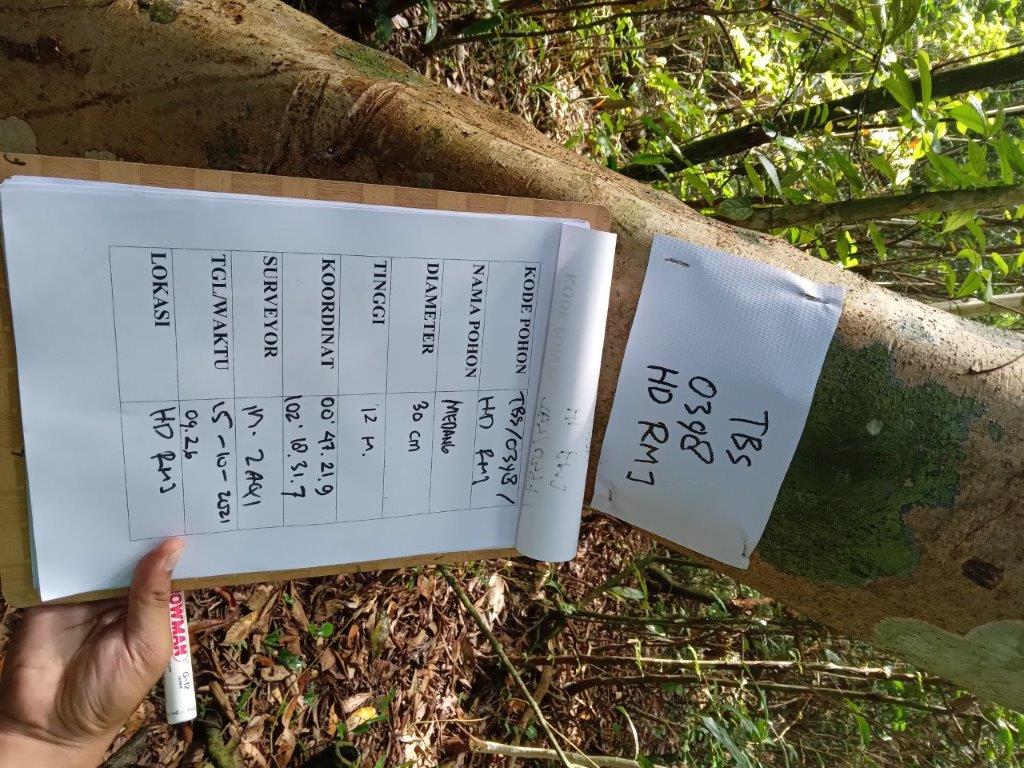 TBS
0398
HD RMJ
KODE POHON TBS/0398/
HD RMJ
NAMA POHON MEDANG
DIAMETER 30 cm
TINGGI 12 M.
KOORDINAT 00°47.21.9
102°18.31.7
SURVEYOR M. ZAQI
TGL/WAKTU 15-10-2021
09.26
LOKASI HD RMJ
KODE POHON
SNOWMAN
G-12